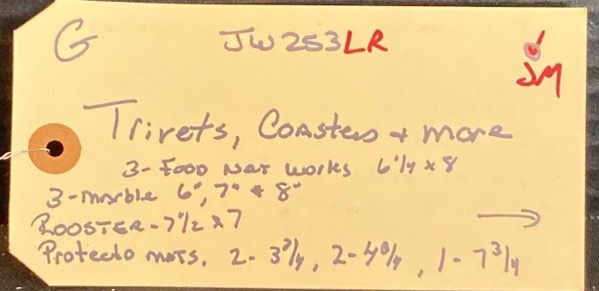 G JW253LR
JM
Trivets, Coasters + more
3- Food Net works 6 1/4 x 8
3-marble 6", 7" & 8"
ROOSTER-7 1/2 x 7
Protecto mats. 2- 3 3/4, 2- 4 3/4, 1- 7 3/4